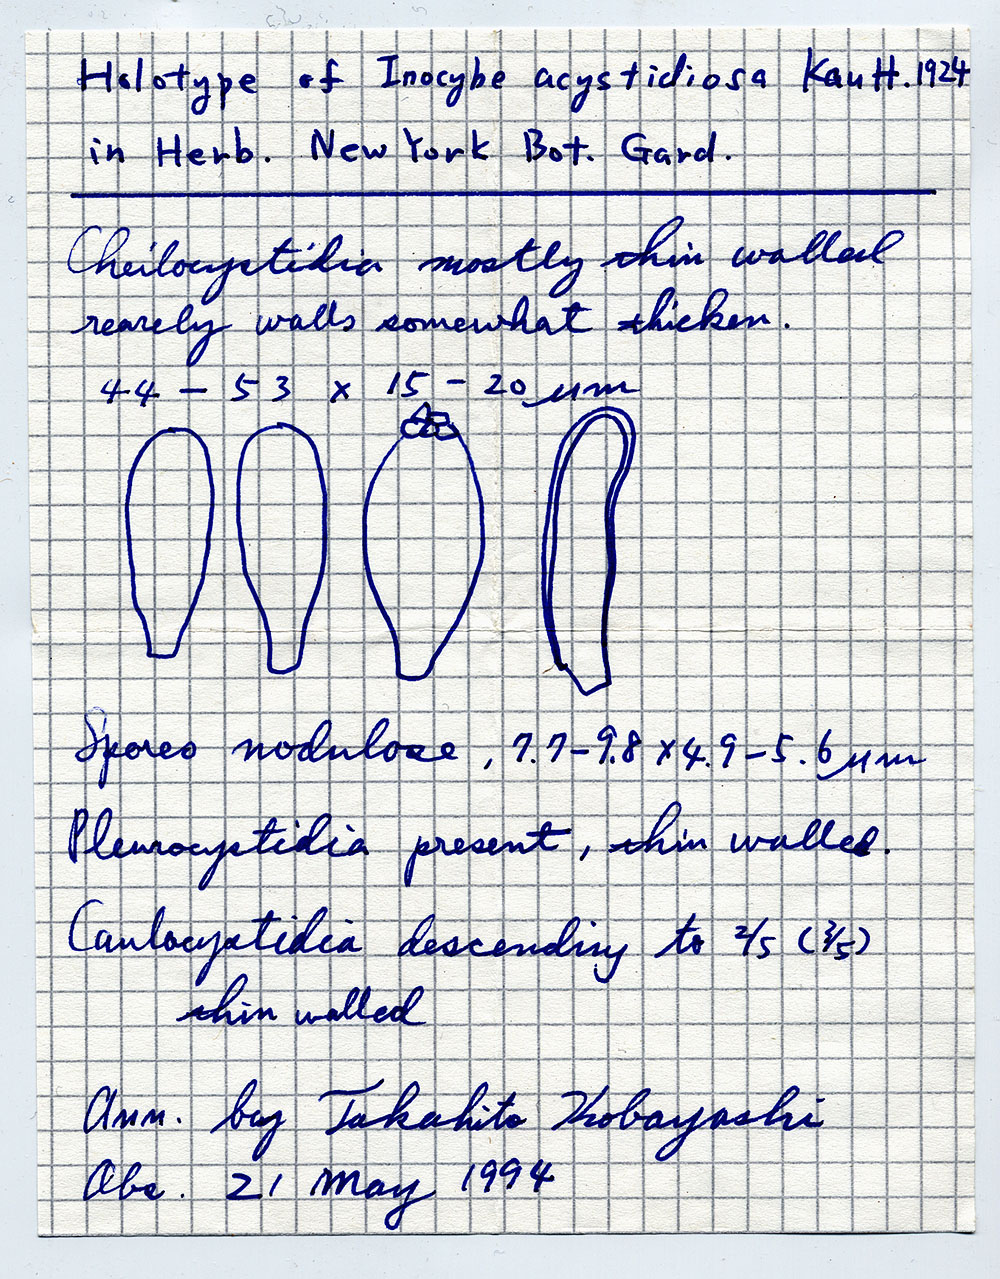 Holotype of Inocybe acystidiosa Kauff. 1924
in Herb. New York Bot. Gard.
Cheilocystidia mostly thin walled
rearely walls somewhat thicken.
44 – 53 x 15 – 20 µm
Spores nodulose, 7.7–9.8 x 4.9–5.6 µm
Pleurocystidia present, thin walled.
Caulocystidia descending to 2/5 (3/5)
thin walled
Ann. by Takahito Kobayashi
Obs. 21 May 1994